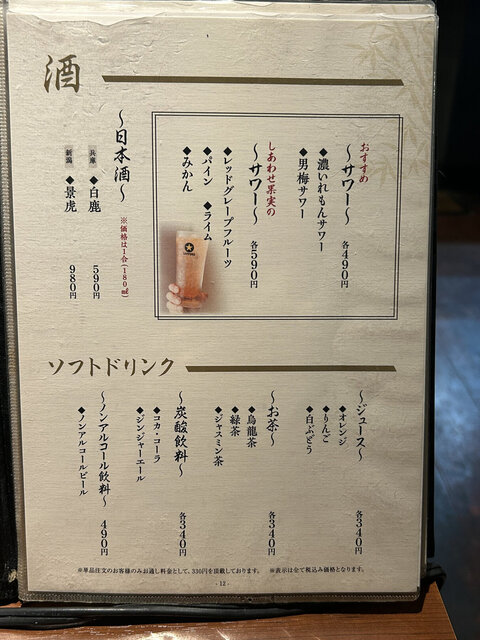 酒
おすすめ
〜サワー〜 各490円
◆濃いれもんサワー
◆男梅サワー
しあわせ果実の
〜サワー〜 各590円
◆レッドグレープフルーツ
◆パイン ◆ライム
◆みかん
〜日本酒〜 ※価格は1合(180㎖)
兵庫 ◆白鹿 590円
新潟 ◆景虎 980円
ソフトドリンク
〜ジュース〜 各340円
◆オレンジ
◆りんご
◆白ぶどう
〜お茶〜 各340円
◆烏龍茶
◆緑茶
◆ジャスミン茶
〜炭酸飲料〜 各340円
◆コカ・コーラ
◆ジンジャーエール
〜ノンアルコール飲料〜 490円
◆ノンアルコールビール
※単品注文のお客様のみお通し料金として、330円を頂戴しております。 ※表示は全て税込み価格となります。
- 12 -